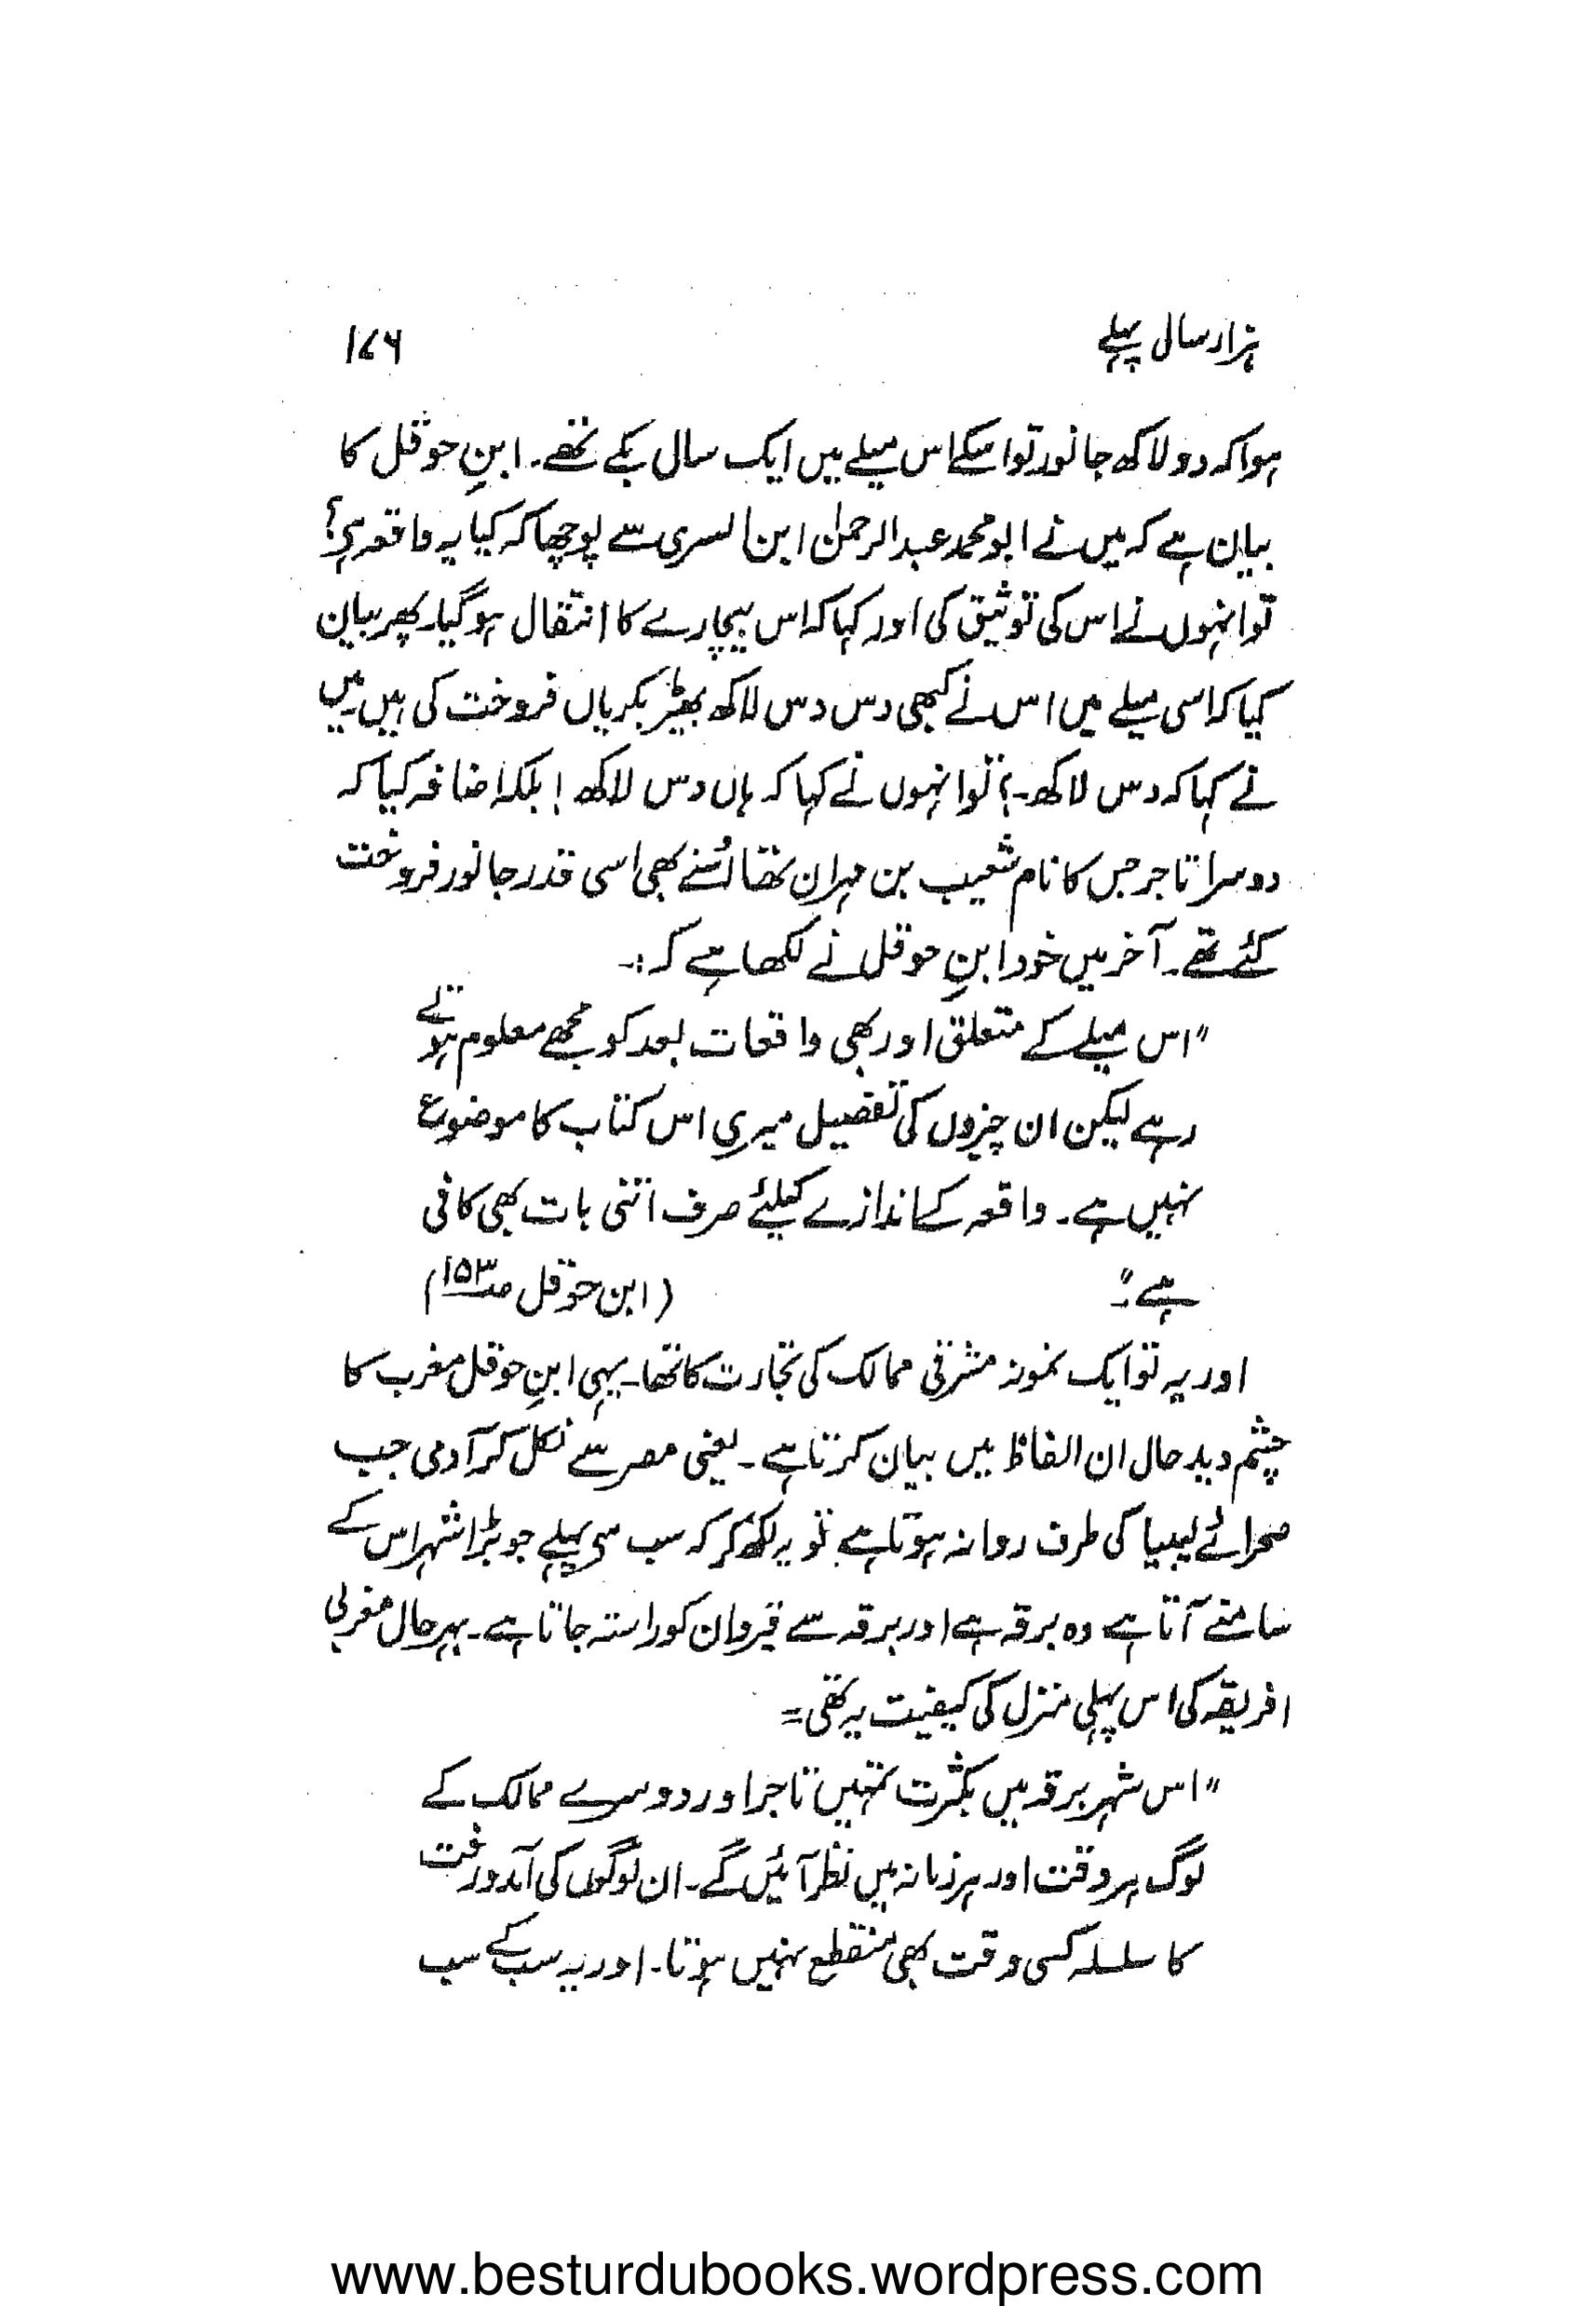 ہزار سال پہلے
۱۷۶
ہوا کہ دو لاکھ جانور تو اسکے اس میلے میں ایک سال بکے تھے۔ ابنِ حوقل کا
بیان ہے کہ میں نے ابو محمد عبدالرحمٰن ابن السری سے پوچھا کہ کیا یہ واقعہ ہی؟
تو انہوں نے اس کی توثیق کی اور کہا کہ اس بیچارے کا انتقال ہو گیا۔ پھر بیان
کیا کہ اسی میلے میں اس نے کبھی دس دس لاکھ بھیڑ بکریاں فروخت کی ہیں۔ میں
نے کہا کہ دس لاکھ۔؟ تو انہوں نے کہا کہ ہاں دس لاکھ! بلکہ اضافہ کیا کہ
دوسرا تاجر جس کا نام شعیب بن مہران تھا اُسنے بھی اسی قدر جانور فروخت
کئے تھے۔ آخر میں خود ابنِ حوقل نے لکھا ہے کہ:۔
"اس میلے کے متعلق اور بھی واقعات بعد کو مجھے معلوم ہوتے
رہے لیکن ان چیزوں کی تفصیل میری اس کتاب کا موضوع
نہیں ہے۔ واقعہ کے اندازے کیلئے صرف اتنی بات بھی کافی
ہے۔" (ابن حوقل صـ۱۵۳)
اور یہ تو ایک نمونہ مشرقی ممالک کی تجارت کا تھا۔ یہی ابنِ حوقل مغرب کا
چشم دید حال ان الفاظ میں بیان کرتا ہے۔ یعنی مصر سے نکل کر آدمی جب
صحرائے لیبیا کی طرف روانہ ہوتا ہے تو یہ لکھ کر کہ سب سی پہلے جو بڑا شہر اس کے
سامنے آتا ہے وہ برقہ ہے اور برقہ سے قیروان کو راستہ جاتا ہے۔ بہرحال مغربی
افریقہ کی اس پہلی منزل کی کیفیت یہ تھی=
"اس شہر برقہ میں بکثرت تمہیں تاجر اور دوسرے ممالک کے
لوگ ہر وقت اور ہر زمانہ میں نظر آئیں گے۔ ان لوگوں کی آمدورفت
کا سلسلہ کسی وقت بھی منقطع نہیں ہوتا۔ اور یہ سب کے سب
www.besturdubooks.wordpress.com